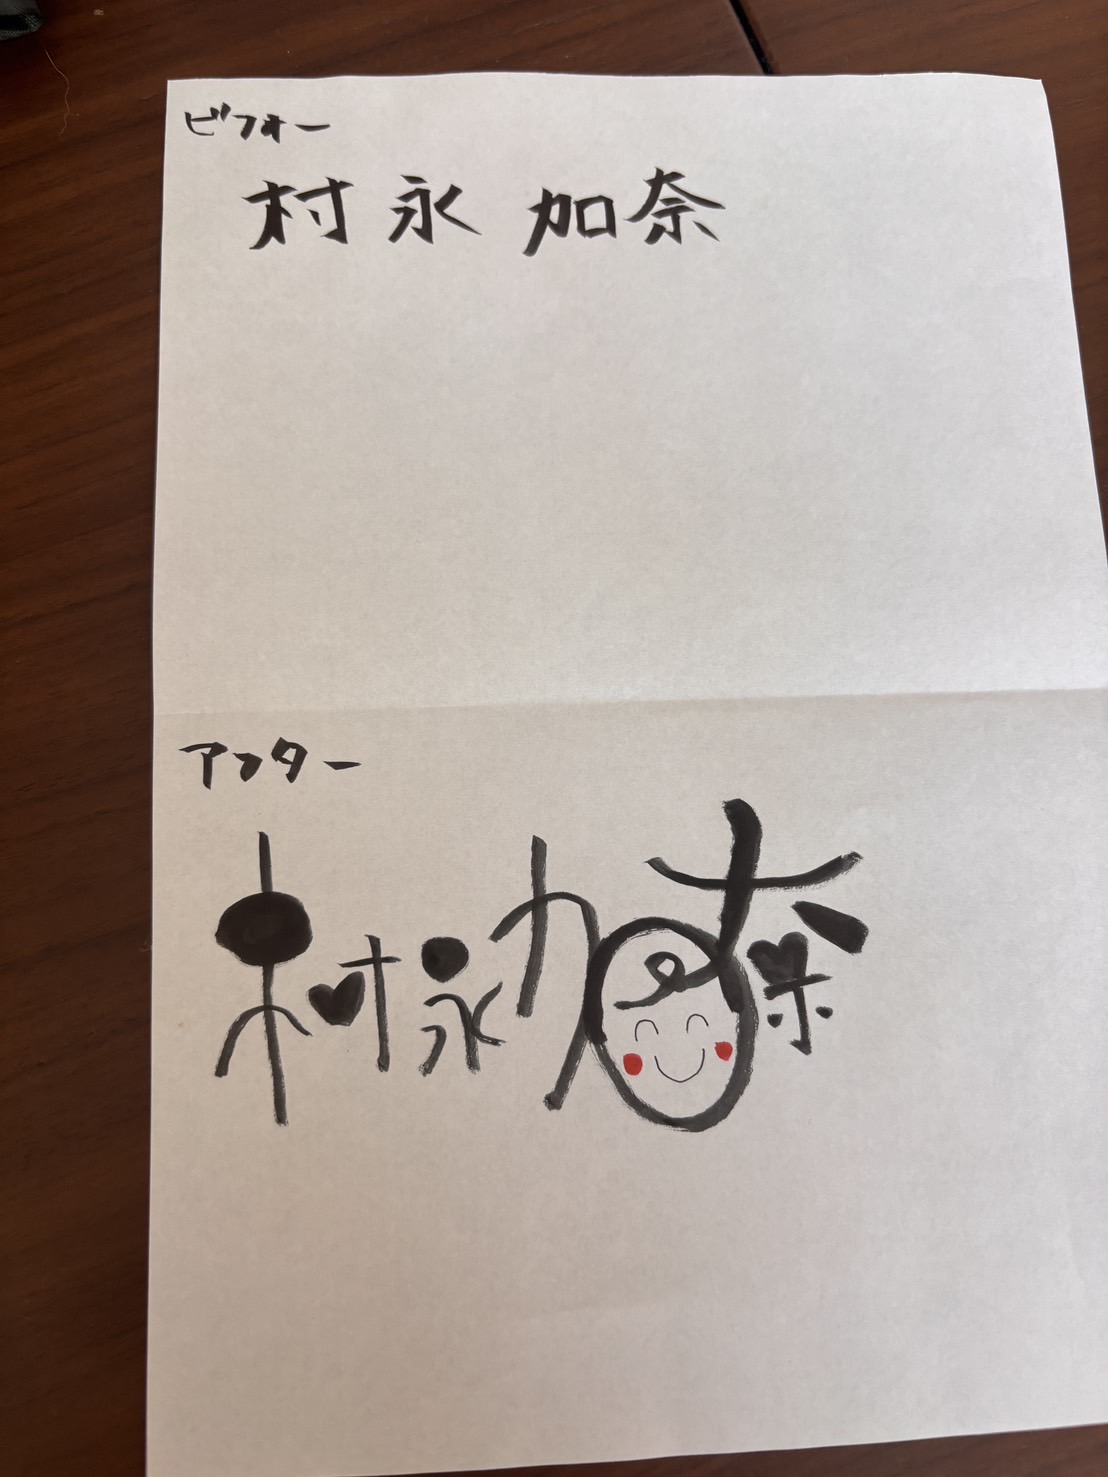 ビフォー
村永 加奈
アフター
村永加奈